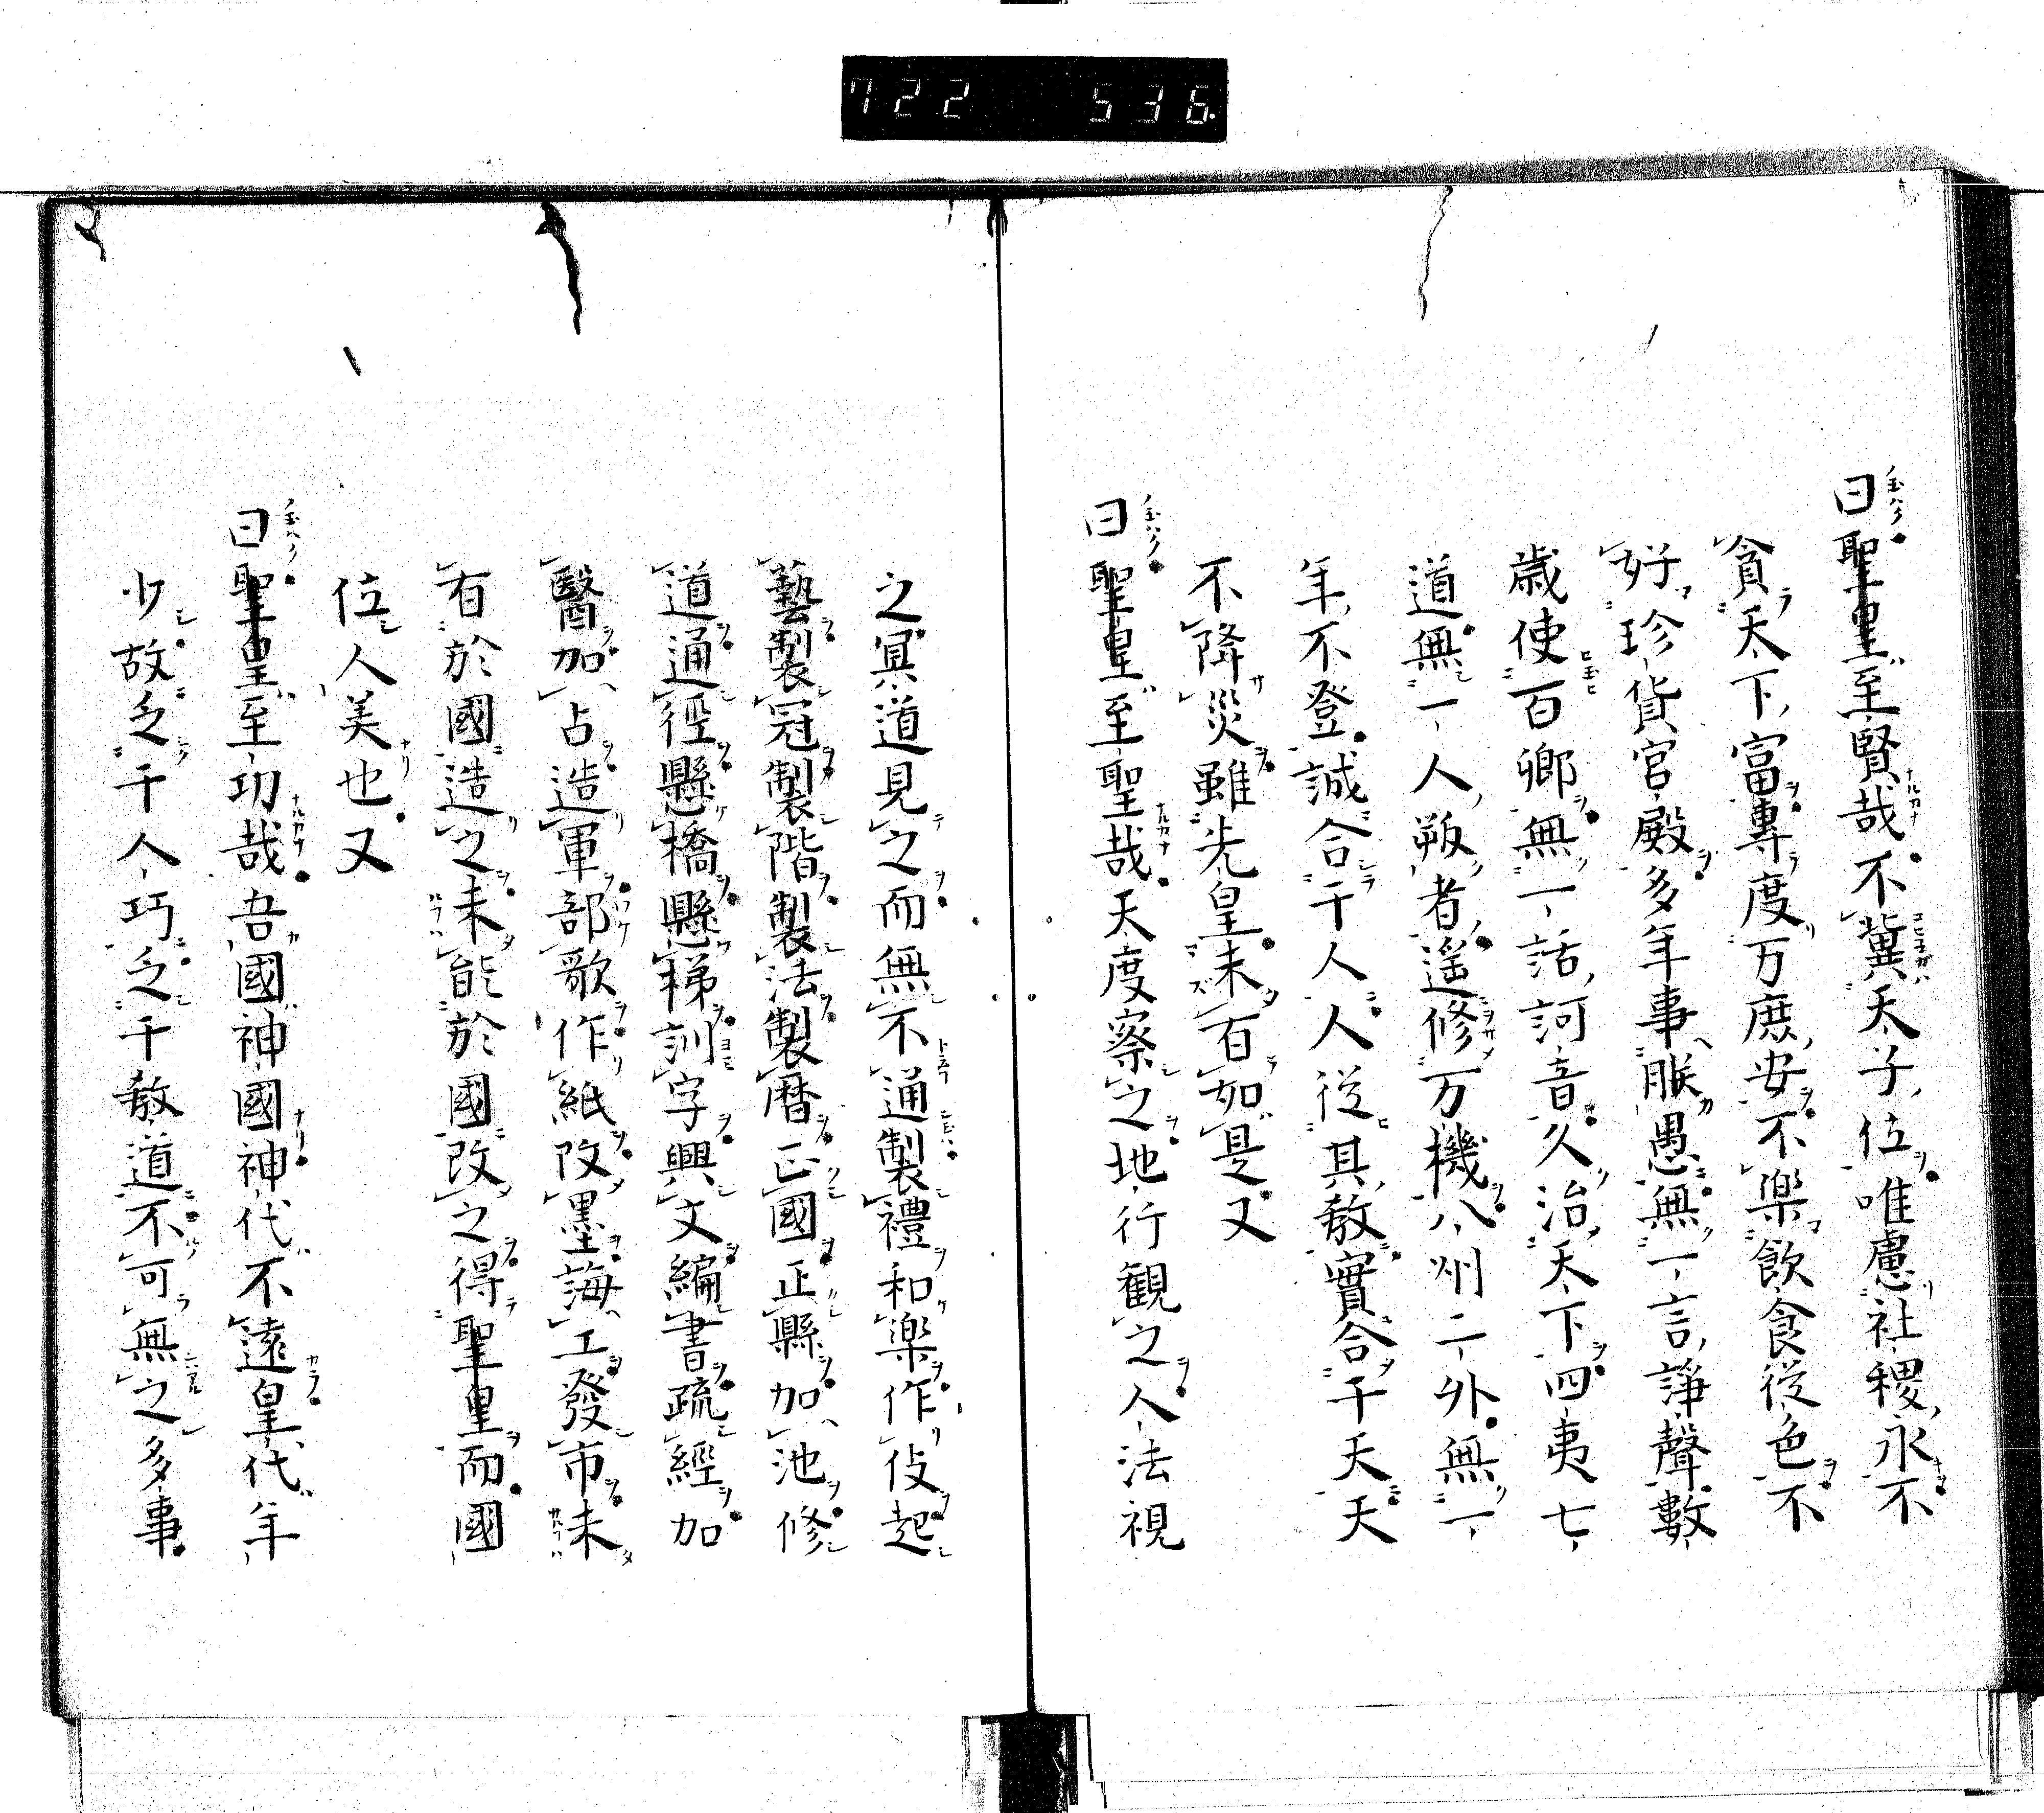 722 536.
曰聖皇至賢哉不冀天子位唯慮社稷永不
貪天下富專度万庶安不楽飲食従色不
好珍貨官殿多年事朕愚無一言諍聲數
歳使百卿無一話訶音久治天下四夷七
道無一人叛者遥修万機八州二外無一
年不登誠合千人人従其教實合千天天
不降災雖先皇未有如是又
曰聖皇至聖哉天度察之地行観之人法視
之冥道見之而無不通製禮和楽作伎起
藝製冠製階製法製暦正國正縣加池修
道通徑懸橋懸梯訓字興文編書疏經加
醫加占造軍部歌作紙改墨誨工發市未
有於國造之未能於國改之得聖皇而國
位人美也又
曰聖皇至功哉吾國神國神代不遠皇代年
少故乏千人巧乏千教道不可無之多事